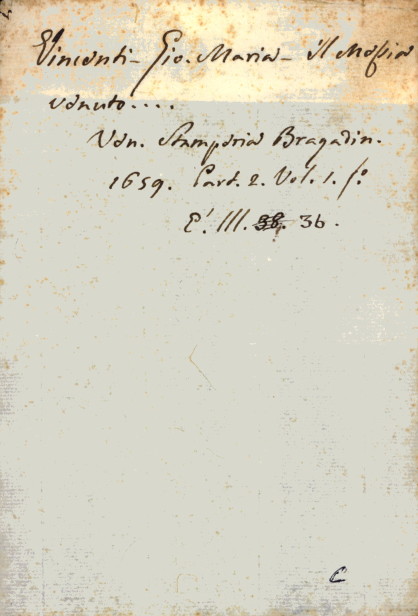 Vincenti - Gio. Maria - il Messia
venuto....
Ven. Stamperia Bragadin.
1659. Part. 2. Vol. 1. fo
E'. III. 38. 36.
C